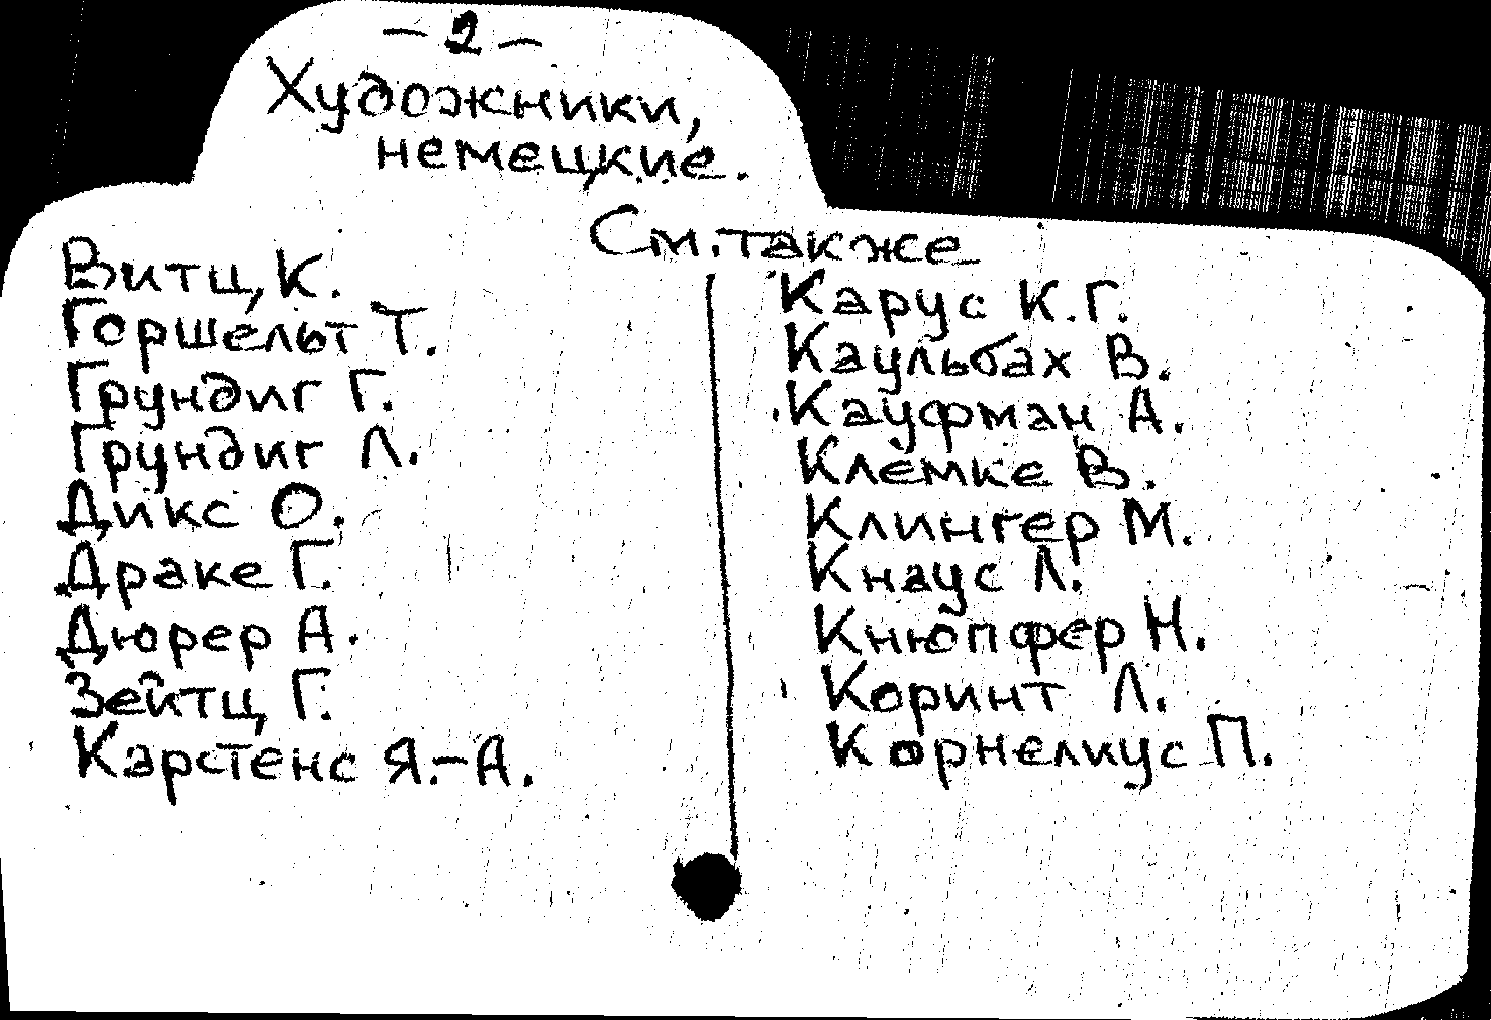 — 2 —
Художники,
немецкие.
См. также
Витц К.
Горшельт Т.
Грундиг Г.
Грундиг Л.
Дикс О.
Драке Г.
Дюрер А.
Зейтц Г.
Карстенс Я.-А.
Карус К.Г.
Каульбах В.
Кауфман А.
Клемке В.
Клингер М.
Кнаус Л.
Кнюпфер Н.
Коринт Л.
Корнелиус П.